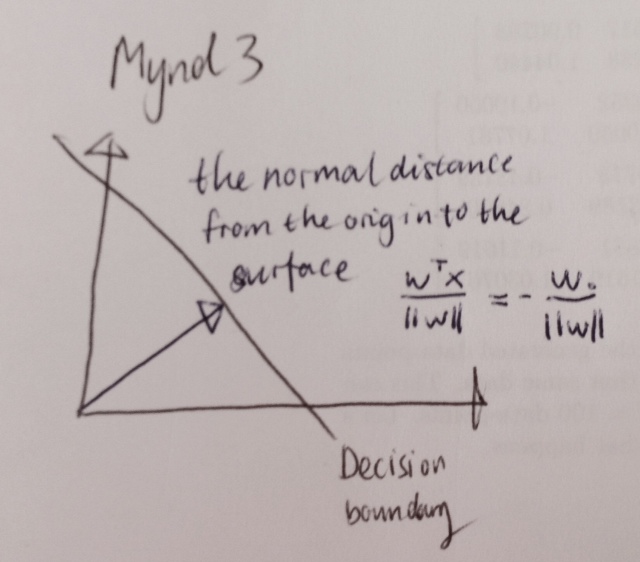 Mynd 3
the normal distance
from the origin to the
surface
wᵀx / ||w|| = - w₀ / ||w||
Decision
boundary